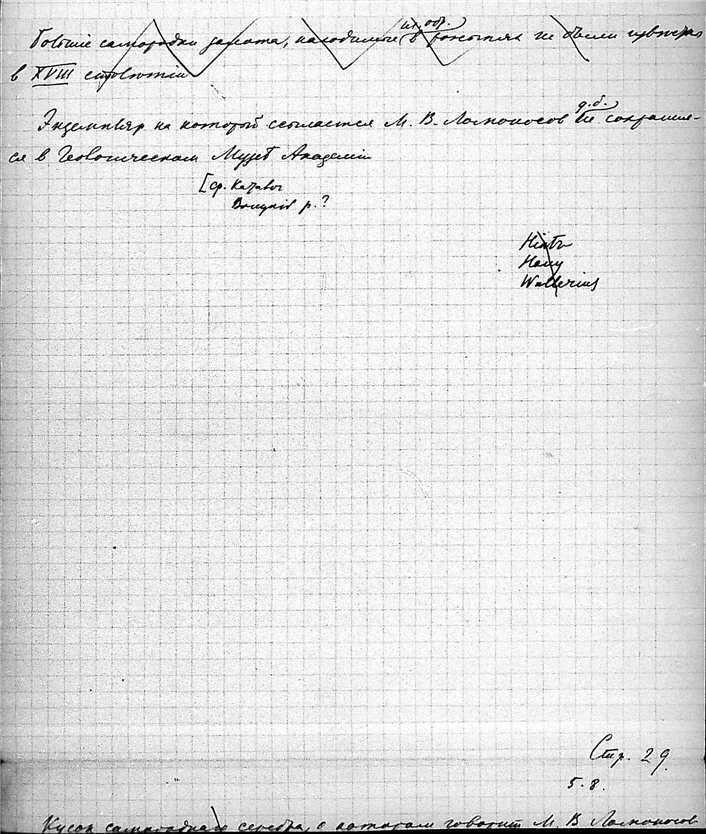 гл. обр.
Большие самородки золота, находимые (в россыпях не были известны
в XVIII столѣтіи
д. б.
Экземпляр на который ссылается М. В. Ломоносов не сохранил-
ся в Геологическом Музеѣ Академіи
[ср.
р.?
Haüy
Wallerius
Стр. 29.
5-8.
Кусок самородного серебра, о котором говорит М. В. Ломоносов